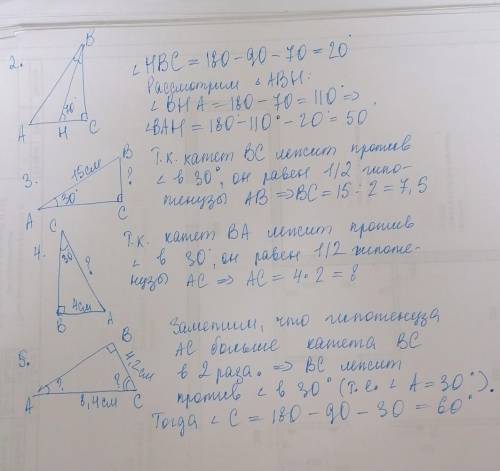 2.
B
70°
A
H
C
∠HBC = 180 - 90 - 70 = 20°
Рассмотрим ∠ABH:
∠BHA = 180 - 70 = 110° ⇒
∠BAH = 180° - 110° - 20° = 50°
3.
15см
B
?
30°
A
C
Т.к. катет BC лежит против
∠ в 30°, он равен 1/2 гипо-
тенузы AB ⇒ BC = 15 : 2 = 7,5
4.
C
30
?
4см
B
A
Т.к. катет BA лежит против
∠ в 30°, он равен 1/2 гипоте-
нузы AC ⇒ AC = 4 · 2 = 8
5.
B
4,2см
?
?
A
8,4см
C
Заметим, что гипотенуза
AC больше катета BC
в 2 раза. ⇒ BC лежит
против ∠ в 30° (т.е. ∠A = 30°).
Тогда ∠C = 180 - 90 - 30 = 60°